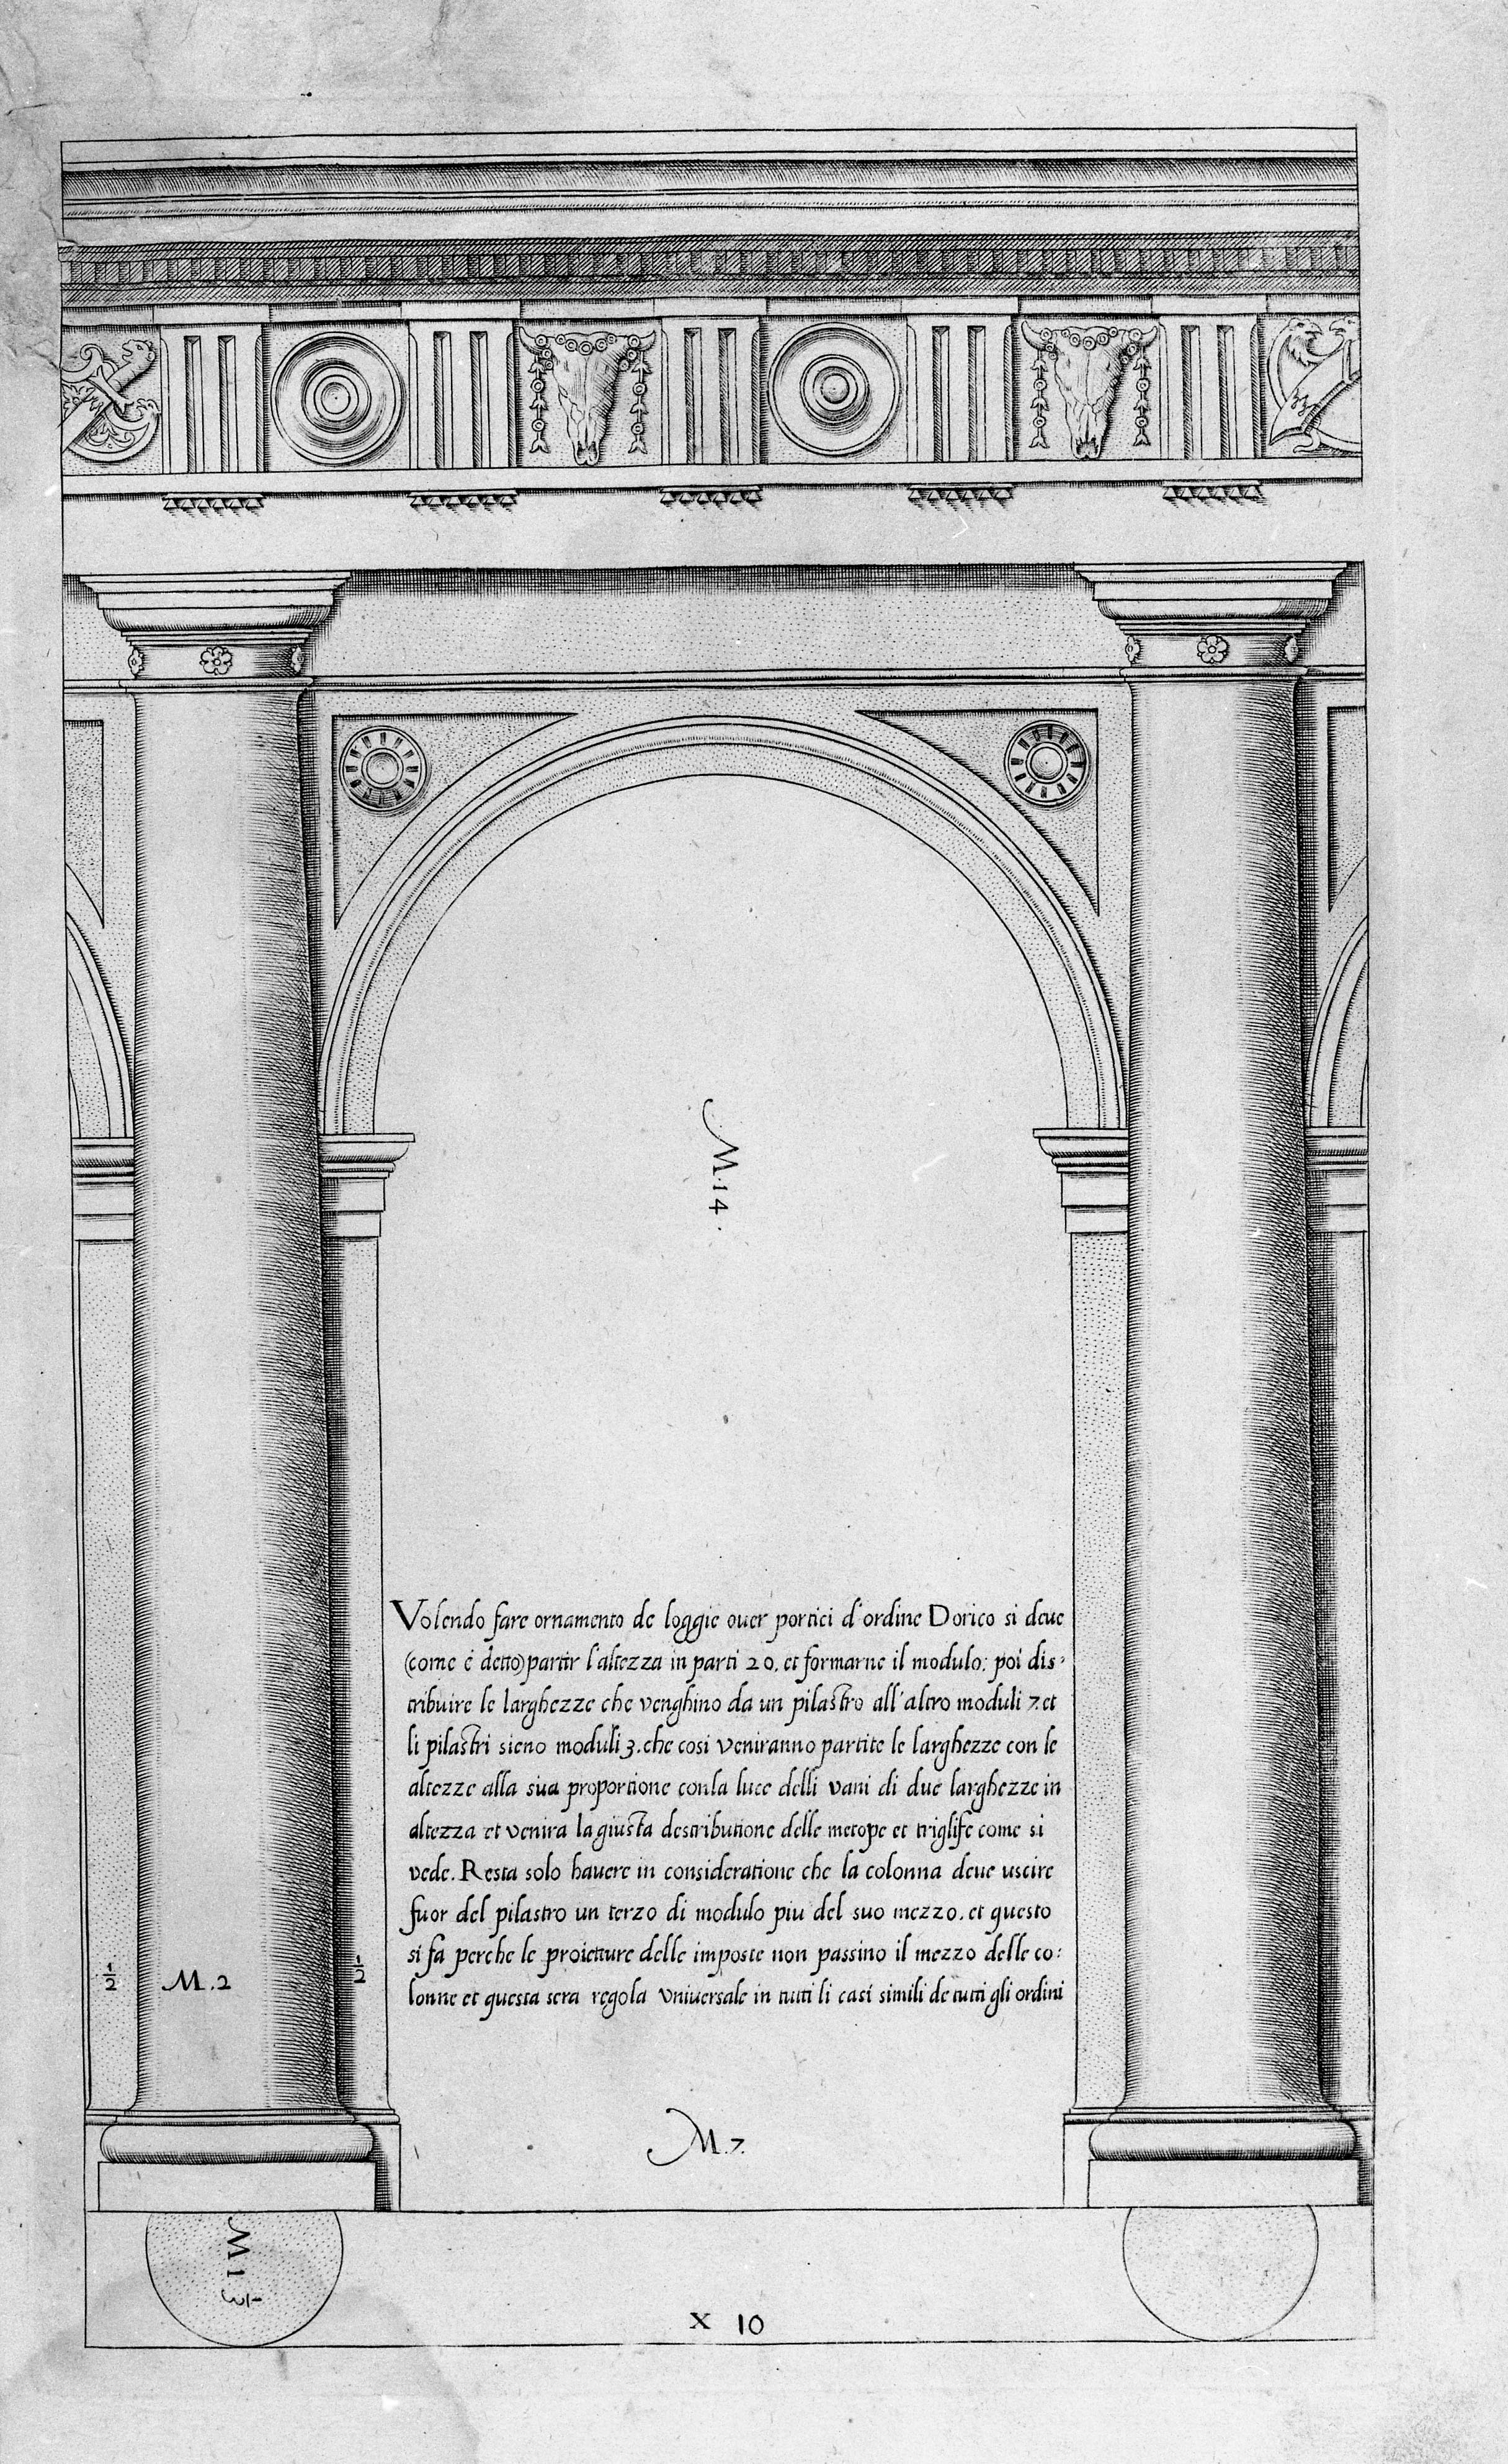 M.14.
Volendo fare ornamento de loggie ouer portici d'ordine Dorico si deue
(come è detto) partir l'altezza in parti 20. et formarne il modulo: poi dis-
tribuire le larghezze che venghino da un pilastro all'altro moduli 7. et
li pilastri sieno moduli 3. che cosi veniranno partite le larghezze con le
altezze alla sua proportione con la luce delli vani di due larghezze in
altezza et venira la giusta destributione delle metope et triglife come si
vede. Resta solo hauere in consideratione che la colonna deue uscire
fuor del pilastro un terzo di modulo piu del suo mezzo. et questo
si fa perche le proietture delle imposte non passino il mezzo delle co:
lonne et questa sera regola vniuersale in tutti li casi simili de tutti gli ordini
1/2 M.2 1/2
M.7.
M 1 1/3
X 10